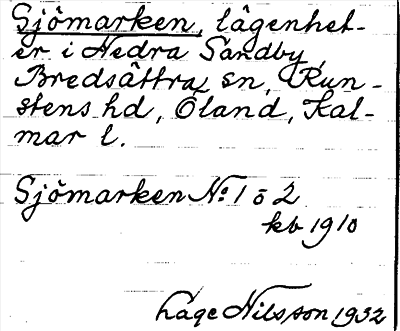 Sjömarken, lägenhet-
er i Nedra Sandby,
Bredsättra sn, Run-
stens hd, Öland, Kal-
mar l.
Sjömarken No. 1 o 2
kb 1910
Lage Nilsson 1932